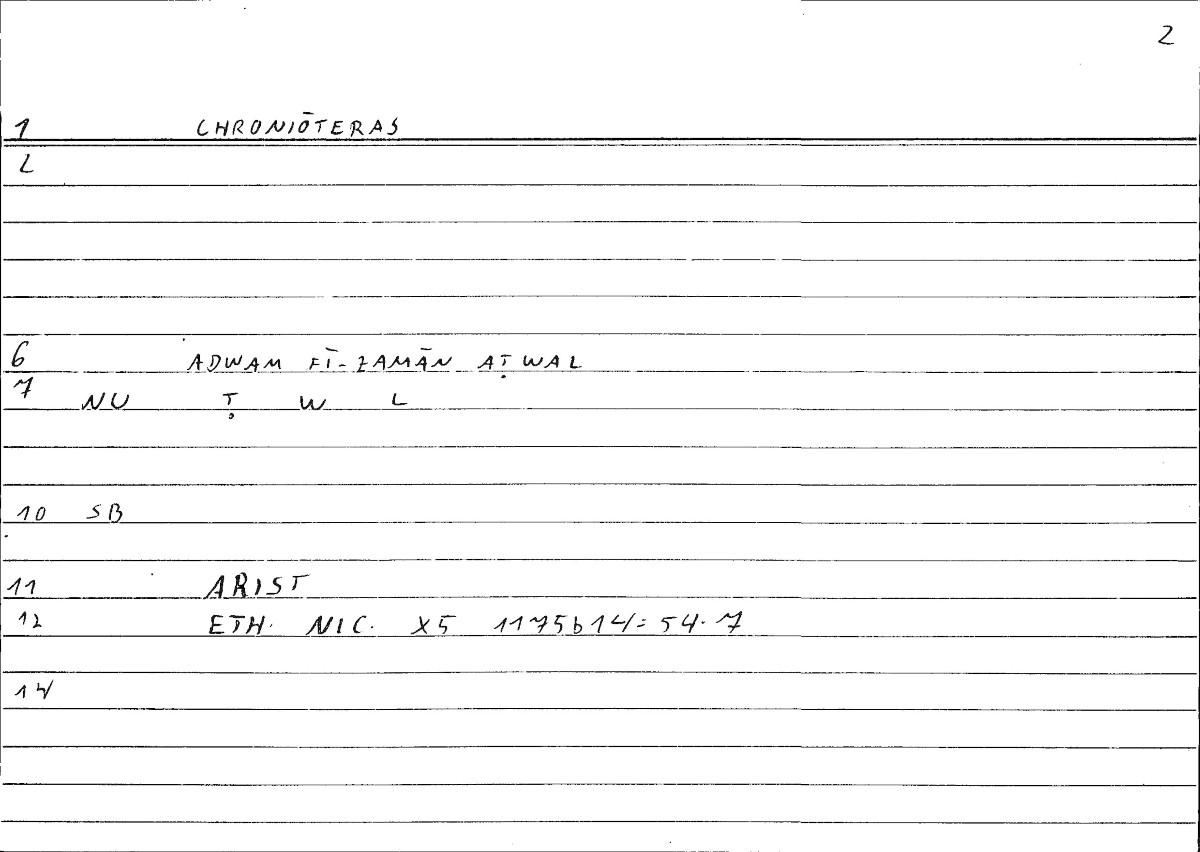 2
1 CHRONIŌTERAS
2
6 ADWAM FĪ-ZAMĀN AṬWAL
7 NU Ṭ W L
10 SB
11 ARIST
12 ETH. NIC. X5 1175b14=54.7
14